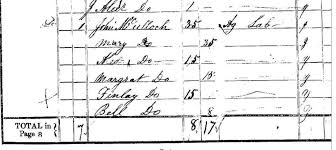 J Alexr Do 1 y
1 John McCulloch 35 Ag Lab y
Mary Do 35 y
Do 15 y
Margrat Do 15 y
Finlay Do 15 y
Bell Do 8 y
TOTAL in Page 8 7 8 17